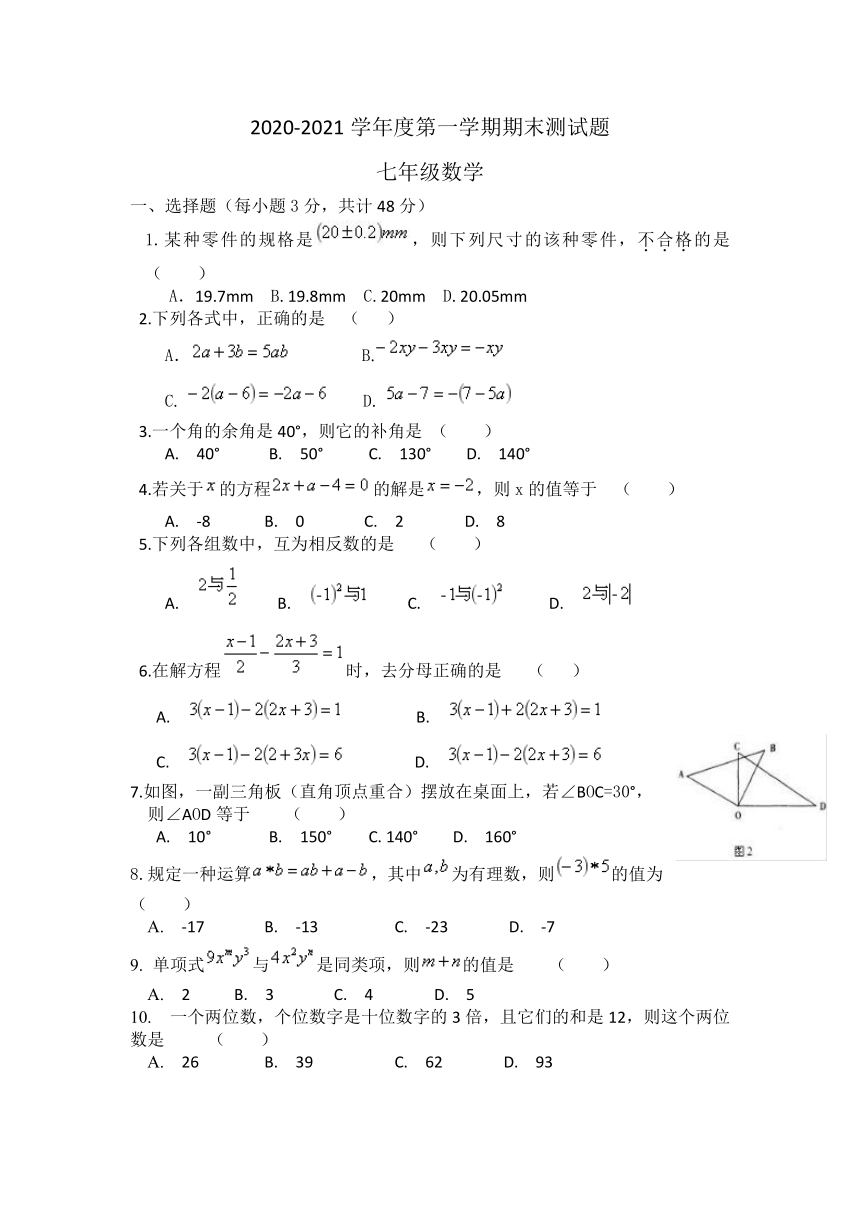 2020-2021 学年度第一学期期末测试题
七年级数学
一、选择题（每小题 3 分，共计 48 分）
1. 某种零件的规格是 (20±0.2)mm ，则下列尺寸的该种零件，不合格的是
（ ）
A. 19.7mm B. 19.8mm C. 20mm D. 20.05mm
2.下列各式中，正确的是 （ ）
A. 2a+3b=5ab B. -2xy-3xy=-xy
C. -2(a-6)=-2a-6 D. 5a-7=-(7-5a)
3.一个角的余角是 40°，则它的补角是 （ ）
A. 40° B. 50° C. 130° D. 140°
4.若关于 x 的方程 2x+a-4=0 的解是 x=-2，则 x 的值等于 （ ）
A. -8 B. 0 C. 2 D. 8
5.下列各组数中，互为相反数的是 （ ）
A. 2与1/2 B. (-1)²与1 C. -1与(-1)² D. 2与|-2|
6.在解方程 (x-1)/2 - (2x+3)/3 = 1 时，去分母正确的是 （ ）
A. 3(x-1)-2(2x+3)=1 B. 3(x-1)+2(2x+3)=1
C. 3(x-1)-2(2+3x)=6 D. 3(x-1)-2(2x+3)=6
7.如图，一副三角板（直角顶点重合）摆放在桌面上，若∠BOC=30°，
则∠AOD 等于 （ ）
A. 10° B. 150° C. 140° D. 160°
C B
A
O D
图2
8. 规定一种运算 a*b=ab+a-b，其中 a,b 为有理数，则 (-3)*5 的值为
（ ）
A. -17 B. -13 C. -23 D. -7
9. 单项式 9xᵐy³ 与 4x²yⁿ 是同类项，则 m+n 的值是 （ ）
A. 2 B. 3 C. 4 D. 5
10. 一个两位数，个位数字是十位数字的 3 倍，且它们的和是 12，则这个两位
数是 （ ）
A. 26 B. 39 C. 62 D. 93